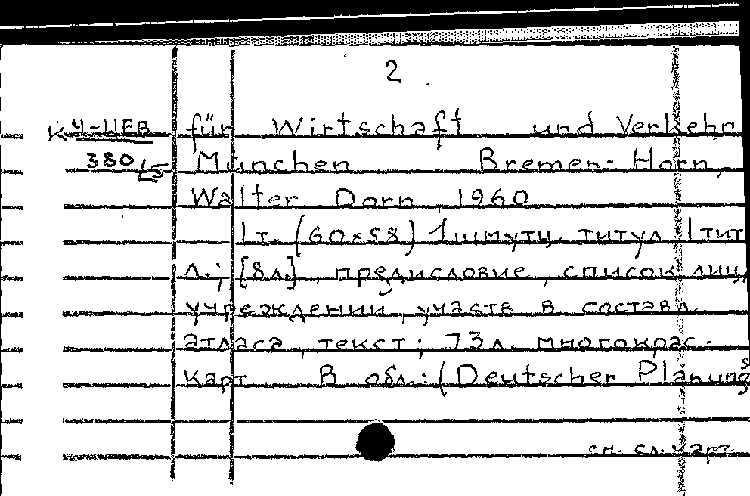 2
КЧ-ЦЕВ für Wirtschaft und Verkehr
380/5 München Bremen-Horn,
Walter Dorn 1960
1 т. (60x58) 1 шмуцт. титул 1 тит
л.; [8 л.] предисловие, список лиц,
учреждений, участв в составл.
атласа, текст; 73 л. многокрас.
карт. В обл.: (Deutscher Planungs
см. сл. карт.